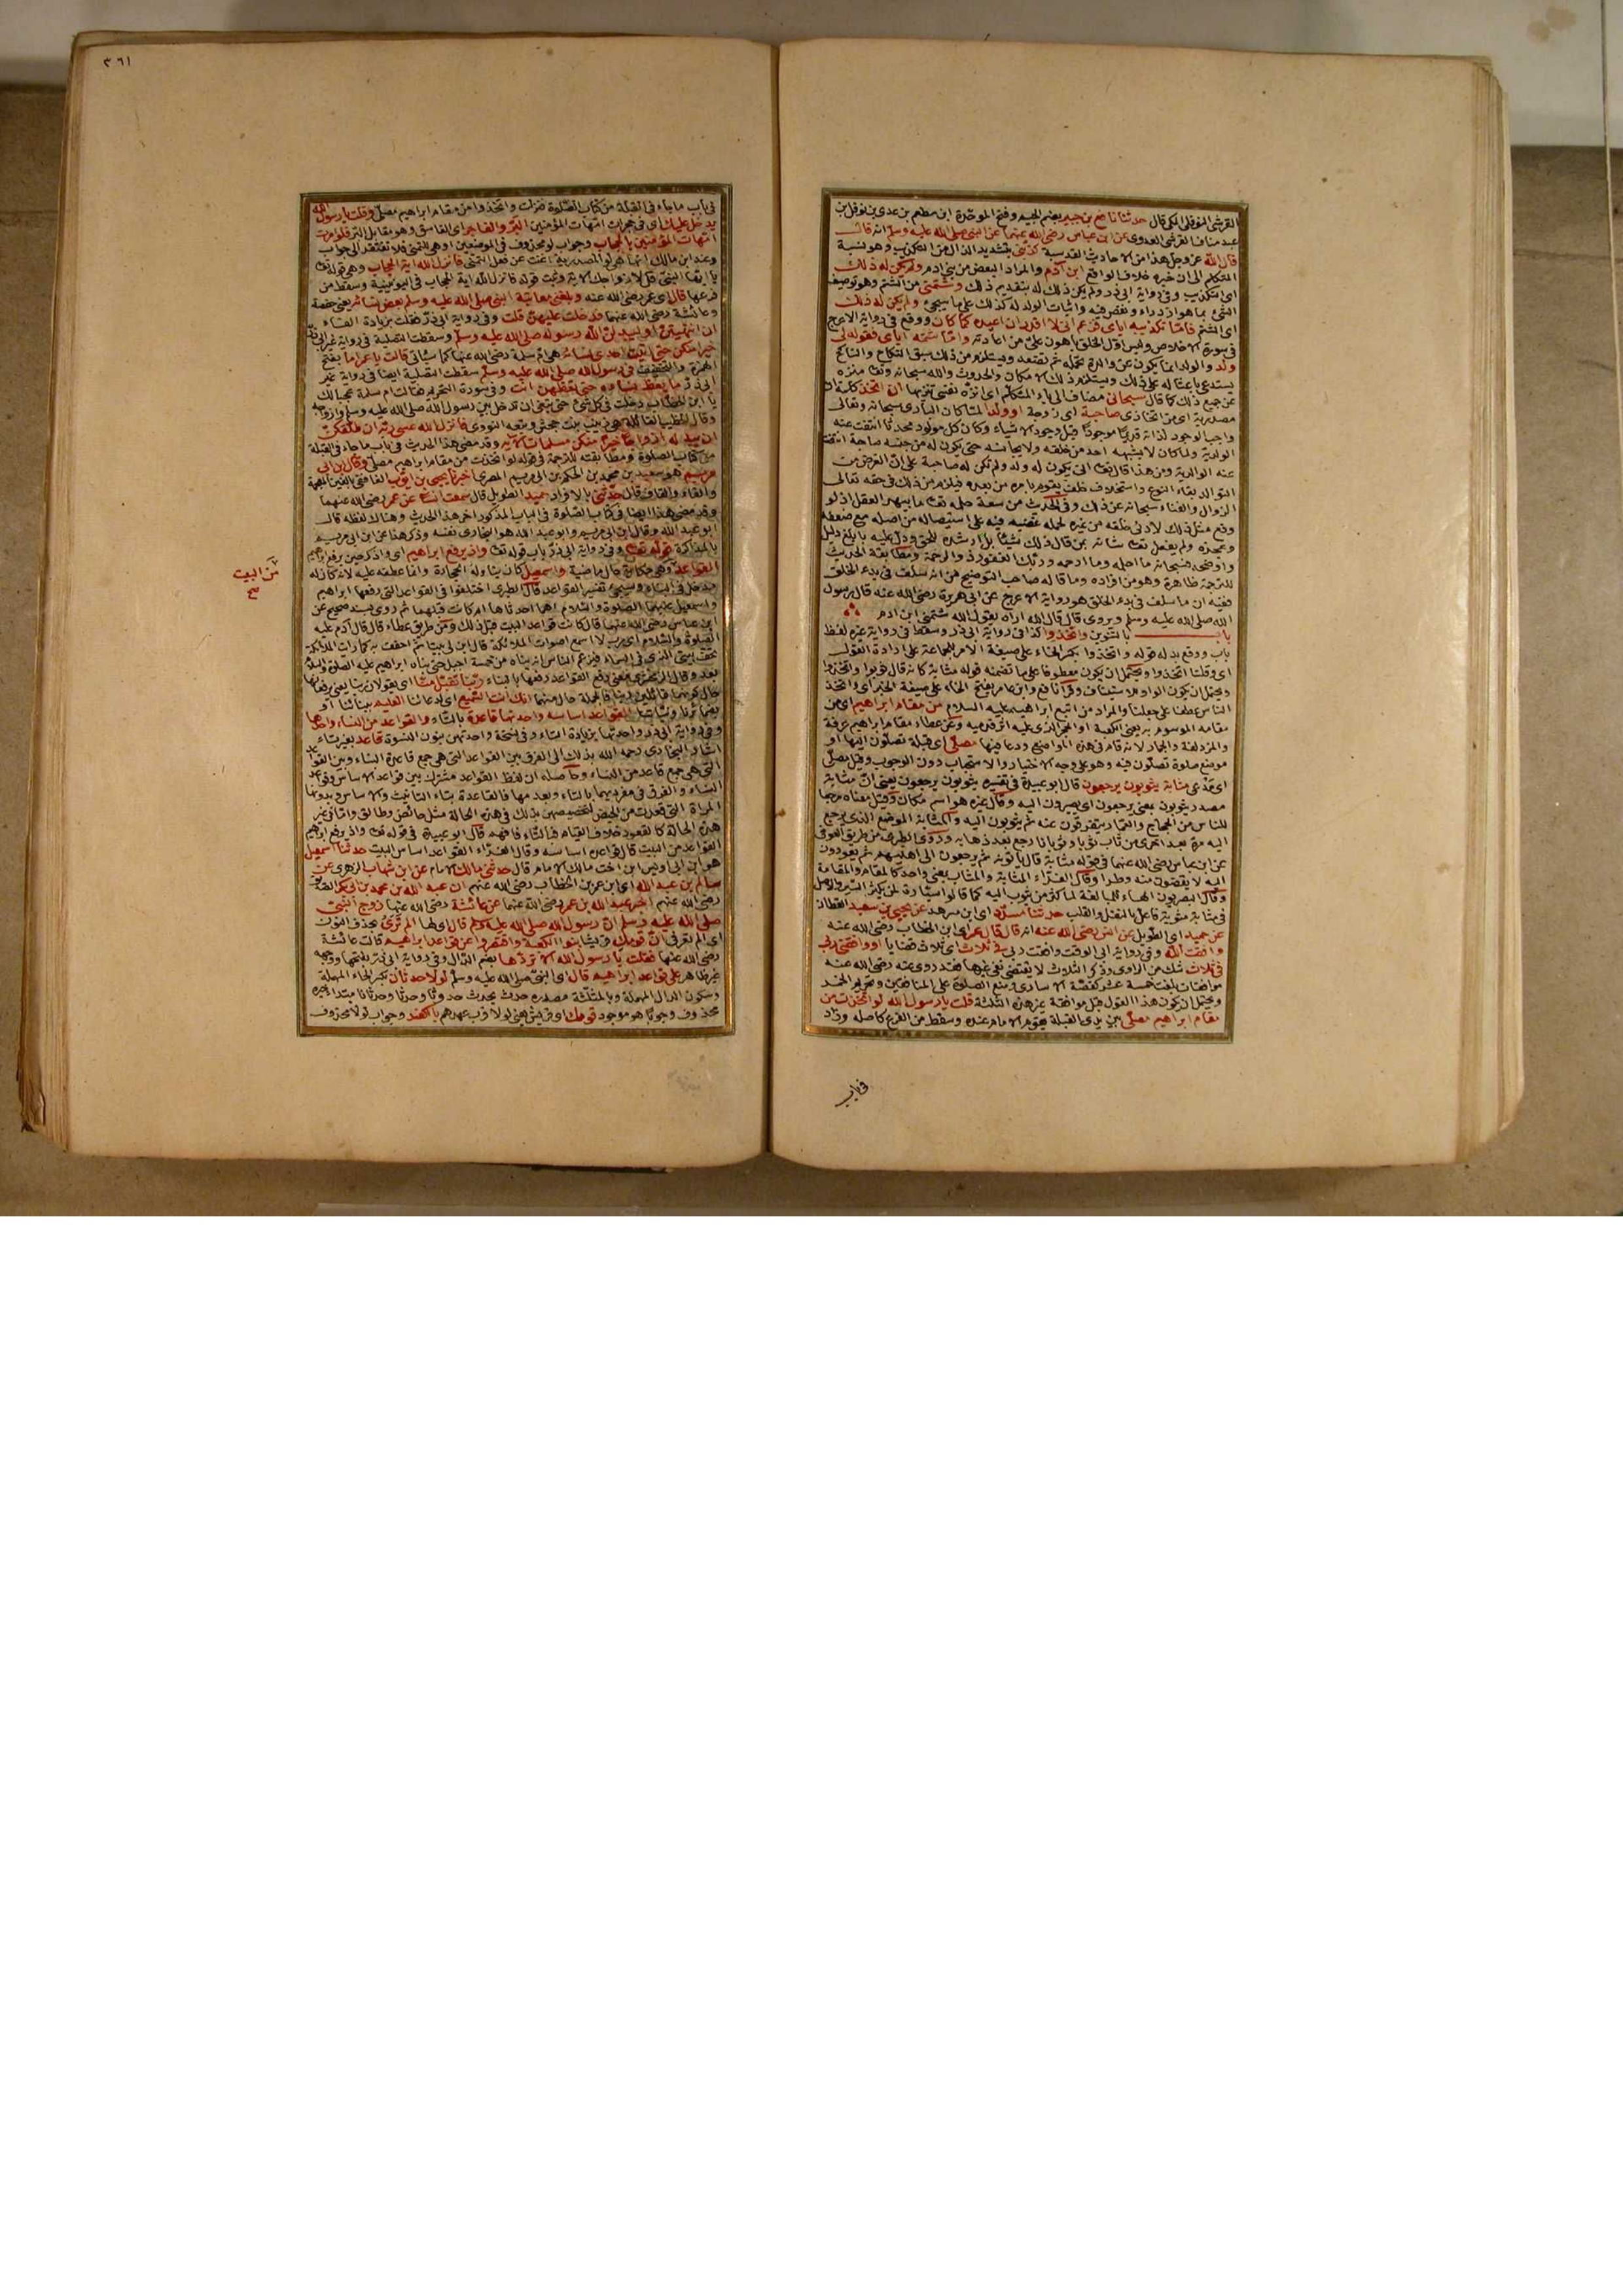 القرشي النوفلي المكي قال حدثنا نافع بن جبير بضم الجيم وفتح الموحدة ابن مطعم بن عدي بن نوفل بن
عبد مناف القرشي العدوي عن ابن عباس رضي الله عنهما عن النبي صلى الله عليه وسلم انه قال
قال الله عز وجل هذا من الاحاديث القدسية كذبني بتشديد الذال من التكذيب وهو نسبة
المتكلم الى ان خبره خلاف الواقع ابن آدم والمراد البعض من بني ادم ولم يكن له ذلك
اى التكذيب وفي رواية ابي ذر ولم يكن ذلك له بتقديم ذلك وشتمني من الشتم وهو توصيف
الشئ بما هو ازدراء ونقص فيه واثبات الولد له كذلك على ما سيجئ ولم يكن له ذلك
اى الشتم فاما تكذيبه اياى فزعم اني لا اقدر ان اعيده كما كان ووقع في رواية الاعرج
في سورة الاخلاص وليس اول الخلق باهون على من اعادته واما شتمه اياى فقوله لي
ولد والولد انما يكون عن والدة تحمله ثم تضعه ويستلزم من ذلك سبق النكاح والناكح
يستدعى باعثا له على ذلك ويستلزم ذلك الامكان والحدوث والله سبحانه وتعالى منزه
عن جميع ذلك كما قال سبحاني مضاف الى ياء المتكلم اى انزه نفسي تنزيها ان اتخذ كلمة ان
مصدرية اى من اتخاذى صاحبة اى زوجة او ولدا لما كان البارى سبحانه وتعالى
واجب الوجود لذاته قديما موجودا قبل وجود الاشياء وكان كل مولود محدثا انتفت عنه
الوالدية ولما كان لا يشبهه احد من خلقه ولا يجانسه حتى يكون له من جنسه صاحبة انتفت
عنه الوالدية ومن هذا قال تعالى انى يكون له ولد ولم تكن له صاحبة على ان الغرض من
التوالد بقاء النوع واستخلاف خلف يقوم بامره من بعده فيلزم من ذلك في حقه تعالى
الزوال والفناء سبحانه عن ذلك وفي الحديث من سعة حلمه تعالى ما يبهر العقل اذ لو
وقع مثل ذلك لادنى خلقه من غيره لحمله غضبه فيه على استيصاله من اصله مع ضعفه
وعجزه ولم يفعل تعالى شانه بمن قال ذلك شيئا بل ارشده للحق ودل عليه بابلغ دليل
واوضحه فسبحانه ما احلمه وما ارحمه وربك الغفور ذو الرحمة ومطابقة الحديث
للترجمة ظاهرة وهو من افراده وما قاله صاحب التوضيح من انه سلف في بدء الخلق
ففيه ان ما سلف في بدء الخلق هو رواية الاعرج عن ابي هريرة رضي الله عنه قال رسول
الله صلى الله عليه وسلم ويروى قال قال الله اراه يقول الله شتمني ابن ادم
باب بالتنوين واتخذوا كذا في رواية ابي ذر وسقط في رواية غيره لفظ
باب ووقع بدله قوله واتخذوا بكسر الخاء على صيغة الامر للجماعة على ارادة القول
اى وقلنا اتخذوا ويحتمل ان يكون معطوفا على ما تضمنه قوله مثابة كانه قال ثوبوا واتخذوا
ويحتمل ان يكون الواو للاستيناف وقرأ نافع وابن عامر بفتح الخاء على صيغة الخبر اى واتخذ
الناس عطفا على جعلنا والمراد من اتبع ابراهيم عليه السلام من مقام ابراهيم اى من
مقامه الموسوم به يعني الكعبة او الحجر الذى عليه اثر قدميه وعن عطاء مقام ابراهيم عرفة
والمزدلفة والجمار لانه قام في هذه المواضع ودعا فيها مصلى اى قبلة تصلون اليها او
موضع صلوة تصلون فيه وهو على وجه الاختيار والاستحباب دون الوجوب وقيل مصلى
اى مدعى مثابة يثوبون يرجعون قال ابو عبيدة في تفسيره يثوبون يرجعون يعني ان مثابة
مصدر يثوبون بمعنى يرجعون اى يصيرون اليه وقال غيره هو اسم مكان وقيل معناه مرجعا
للناس من الحجاج والعمار يتفرقون عنه ثم يثوبون اليه والمثابة الموضع الذى يرجع
اليه مرة بعد اخرى من ثاب ثوبا وثوبانا رجع بعد ذهابه وروى الطبرى من طريق العوفي
عن ابن عباس رضي الله عنهما في قوله مثابة قال يأتونه ثم يرجعون الى اهليهم ثم يعودون
اليه لا يقضون منه وطرا وقال الفراء المثابة والمثاب بمعنى واحد كالمقام والمقامة
وقال البصريون الهاء للمبالغة لما كثر من يثوب اليه كما قالوا سيارة لمن يكثر السير والاصل
في مثابة مثوبة فاعل بالنقل والقلب حدثنا مسدد اى ابن مسرهد عن يحيى بن سعيد القطان
عن حميد اى الطويل عن انس رضي الله عنه انه قال قال عمر اى ابن الخطاب رضي الله عنه
وافقت الله وفي رواية ابي الوقت وافقت ربي في ثلاث اى ثلاث قضايا او وافقني ربي
في ثلاث شك من الراوى وذكر الثلاث لا يقتضى نفي غيرها فقد روى عنه رضي الله عنه
موافقات بلغت خمسة عشر كقصة الاسارى ومنع الصلوة على المنافقين وتحريم الخمر
ويحتمل ان يكون هذا القول قبل موافقة غير هذه الثلثة قلت يا رسول الله لو اتخذت من
مقام ابراهيم مصلى بين يدى القبلة يقوم الامام عنده وسقط من الفرع كاصله وزاد
في باب
٣٦١
في باب ما جاء في القبلة من كتاب الصلوة فنزلت واتخذوا من مقام ابراهيم مصلى وقلت يا رسول الله
يدخل عليك اى في حجرات امهات المؤمنين البر والفاجر اى الفاسق وهو مقابل البر فلو امرت
امهات المؤمنين بالحجاب وجواب لو محذوف في الموضعين او هي للتمني فلا تفتقر الى جواب
وعند ابن مالك انها هي لو المصدرية اغنت عن فعل التمني فانزل الله اية الحجاب وهي قوله تعالى
يا ايها النبي قل لازواجك الاية وثبت قوله فانزل الله اية الحجاب في اليونينية وسقط من
فرعها قال اى عمر رضي الله عنه وبلغني معاتبة النبي صلى الله عليه وسلم بعض نسائه يعني حفصة
وعائشة رضي الله عنهما فدخلت عليهن قلت وفي رواية ابي ذر فقلت بزيادة الفاء
ان انتهيتن او ليبدلن الله رسوله صلى الله عليه وسلم وسقطت التصلية في رواية غير ابي ذر
خيرا منكن حتى اتيت احدى نسائه هي ام سلمة رضي الله عنها كما سيأتي قالت يا عمر اما بفتح
الهمزة والتخفيف في رسول الله صلى الله عليه وسلم سقطت التصلية ايضا في رواية غير
ابي ذر ما يعظ نساءه حتى تعظهن انت وفي سورة التحريم فقالت ام سلمة عجبا لك
يا ابن الخطاب دخلت في كل شئ حتى تبتغي ان تدخل بين رسول الله صلى الله عليه وسلم وازواجه
وقال الخطيب القائلة هي زينب بنت جحش وتبعه النووى فانزل الله عسى ربه ان طلقكن
ان يبدله ازواجا خيرا منكن مسلمات الآية وقد مضى هذا الحديث في باب ما جاء في القبلة
من كتاب الصلوة ومطابقته للترجمة في قوله لو اتخذت من مقام ابراهيم مصلى وقال ابن ابي
مريم هو سعيد بن محمد بن الحكم بن ابي مريم المصرى اخبرنا يحيى بن ايوب الغافقي بالغين المعجمة
والفاء والقاف قال حدثني بالافراد حميد الطويل قال سمعت انسا عن عمر رضي الله عنهما
وقد مضى هذا ايضا في كتاب الصلوة في الباب المذكور اخر هذا الحديث وهناك لفظه قال
ابو عبد الله وقال ابن ابي مريم وابو عبد الله هو البخارى نفسه وذكر هذا عن ابن ابي مريم
بالمذاكرة قوله تعالى وفي رواية ابي ذر باب قوله تعالى واذ يرفع ابراهيم اى واذكر حين يرفع ابراهيم
القواعد وهي حكاية حال ماضية واسمعيل كان يناوله الحجارة وانما عطفه عليه لانه كان له
من البيت
صح
مدخل في البناء وسيجئ تفسير القواعد قال الطبرى اختلفوا في القواعد التي رفعها ابراهيم
واسمعيل عليهما الصلوة والسلام اهما احدثاها ام كانت قبلهما ثم روى بسند صحيح عن
ابن عباس رضي الله عنهما قال كانت قواعد البيت قبل ذلك ومن طريق عطاء قال قال آدم عليه
الصلوة والسلام اى رب لا اسمع اصوات الملائكة قال ابن لي بيتا ثم احفف به كما رايت الملائكة
تحف ببيتي الذى في السماء فيزعم الناس انه بناه من خمسة اجبل حتى بناه ابراهيم عليه الصلوة والسلام
بعد وقال الزمخشرى معنى رفع القواعد رفعها بالبناء ربنا تقبل منا اى يقولان ربنا يعني يرفعانها
حال كونهما قائلين ربنا فالجملة حال منهما انك انت السميع اى لدعائنا العليم بنياتنا او
بضمائرنا ونياتنا القواعد اساسه واحدتها قاعدة بالتاء والقواعد من النساء واحدها
وفي رواية ابي ذر واحدتها بزيادة التاء وفي نسخة واحدتهن بنون النسوة قاعد بغير تاء
اشار البخارى رحمه الله بذلك الى الفرق بين القواعد التي هي جمع قاعدة البناء وبين القواعد
التي هي جمع قاعد من النساء وحاصله ان لفظ القواعد مشترك بين قواعد الاساس وقواعد
النساء والفرق في مفرديهما بالتاء وبعدمها فالقاعدة بتاء التانيث الاساس وبدونها
المرأة التي قعدت من الحيض لتخصيصهن بذلك في هذه الحالة مثل حائض وطالق واما في غير
هذه الحالة كالقعود خلاف القيام فبالتاء فافهم قال ابو عبيدة في قوله تعالى واذ يرفع ابراهيم
القواعد من البيت قال قواعده اساسه وقال الفراء القواعد اساس البيت حدثنا اسمعيل
هو ابن ابي اويس ابن اخت مالك الامام قال حدثني مالك الامام عن ابن شهاب الزهرى عن
سالم بن عبد الله اى ابن عمر بن الخطاب رضي الله عنهم ان عبد الله بن محمد بن ابي بكر الصديق
رضي الله عنهم اخبر عبد الله بن عمر رضي الله عنهما عن عائشة رضي الله عنها زوج النبي
صلى الله عليه وسلم ان رسول الله صلى الله عليه وسلم قال اى لها الم ترى بحذف النون
اى الم تعرفي ان قومك قريشا بنوا الكعبة واقتصروا عن قواعد ابراهيم قالت عائشة
رضي الله عنها فقلت يا رسول الله الا تردها بضم الدال وفي رواية ابي ذر بفتحها ووجهه
غير ظاهر على قواعد ابراهيم قال اى النبي صلى الله عليه وسلم لولا حدثان بكسر الحاء المهملة
وسكون الدال المهملة وبالمثلثة مصدر حدث يحدث حدوثا وحدثا وحدثانا مبتدأ خبره
محذوف وجوبا هو موجود قومك اى قريش يعني لولا قرب عهدهم بالكفر وجواب لولا محذوف